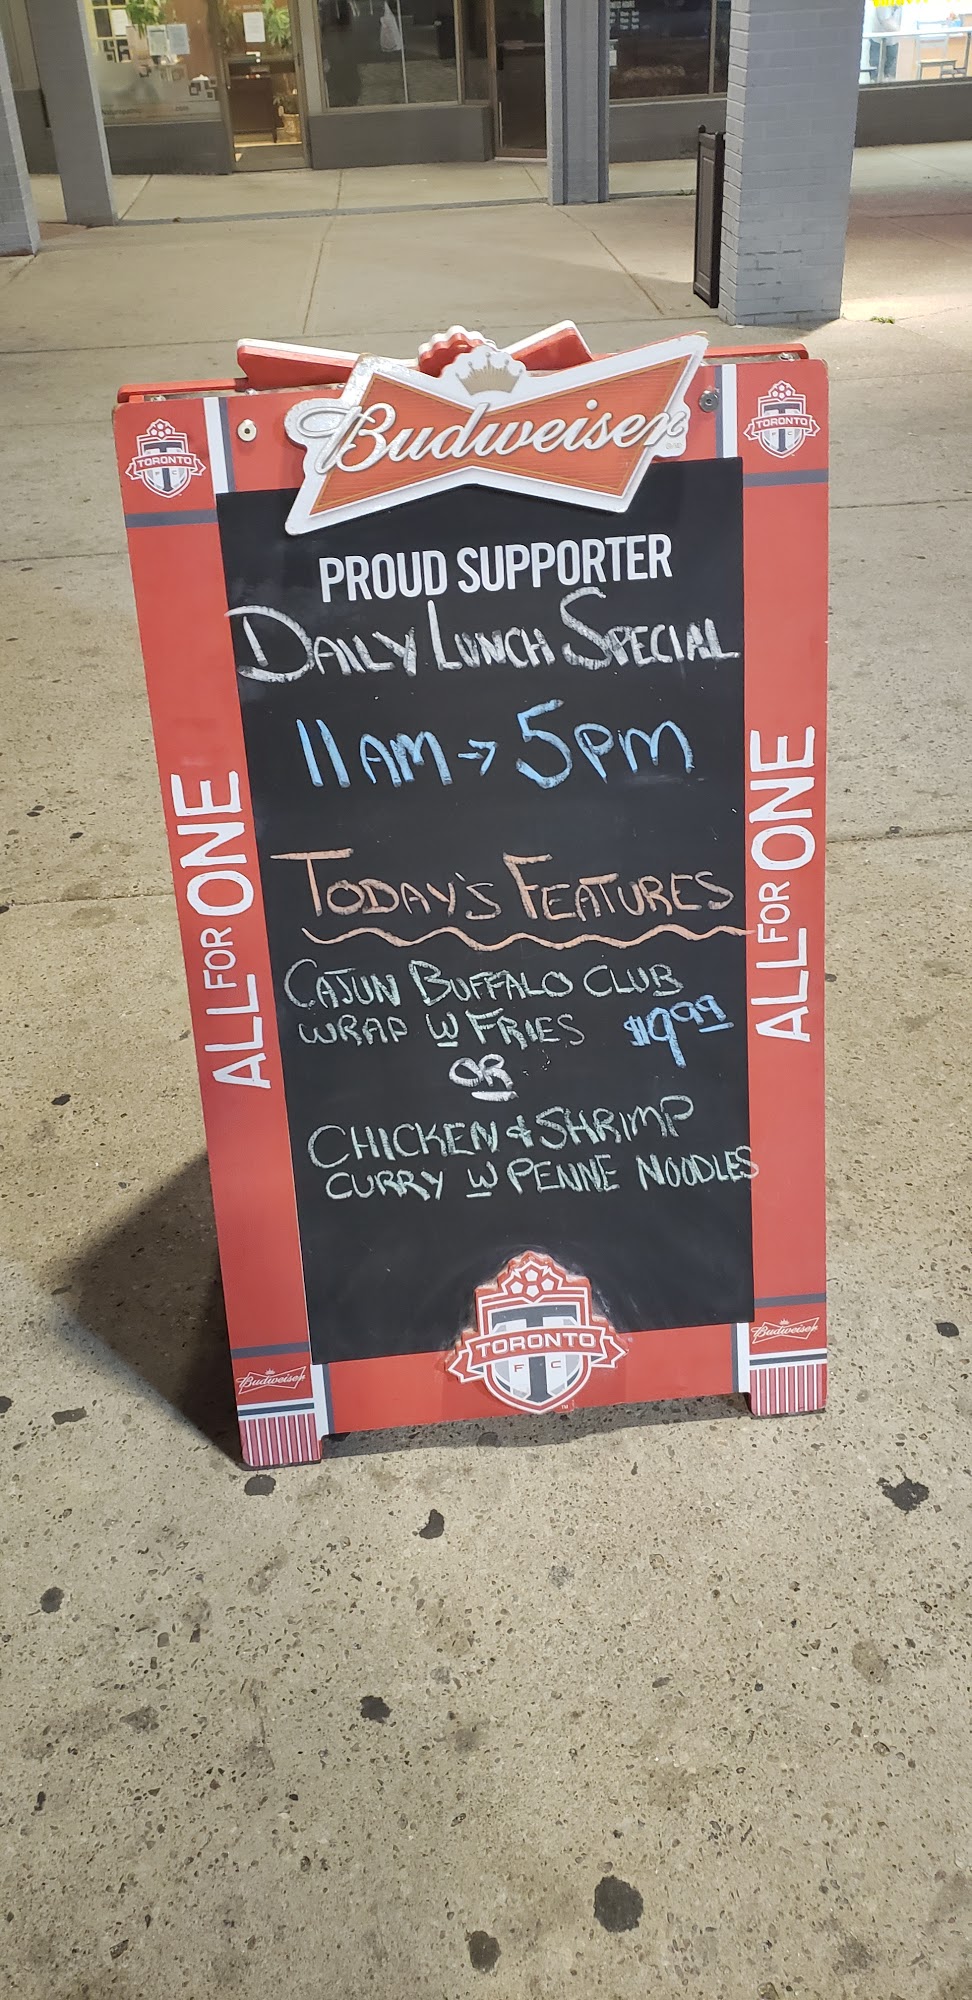 Budweiser
TORONTO
F C
TORONTO
F C
PROUD SUPPORTER
DAILY LUNCH SPECIAL
11AM → 5PM
TODAY'S FEATURES
CAJUN BUFFALO CLUB
WRAP W FRIES $9.99
OR
CHICKEN & SHRIMP
CURRY W PENNE NOODLES
ALL FOR ONE
ALL FOR ONE
TORONTO
F C
TM
Budweiser
Budweiser